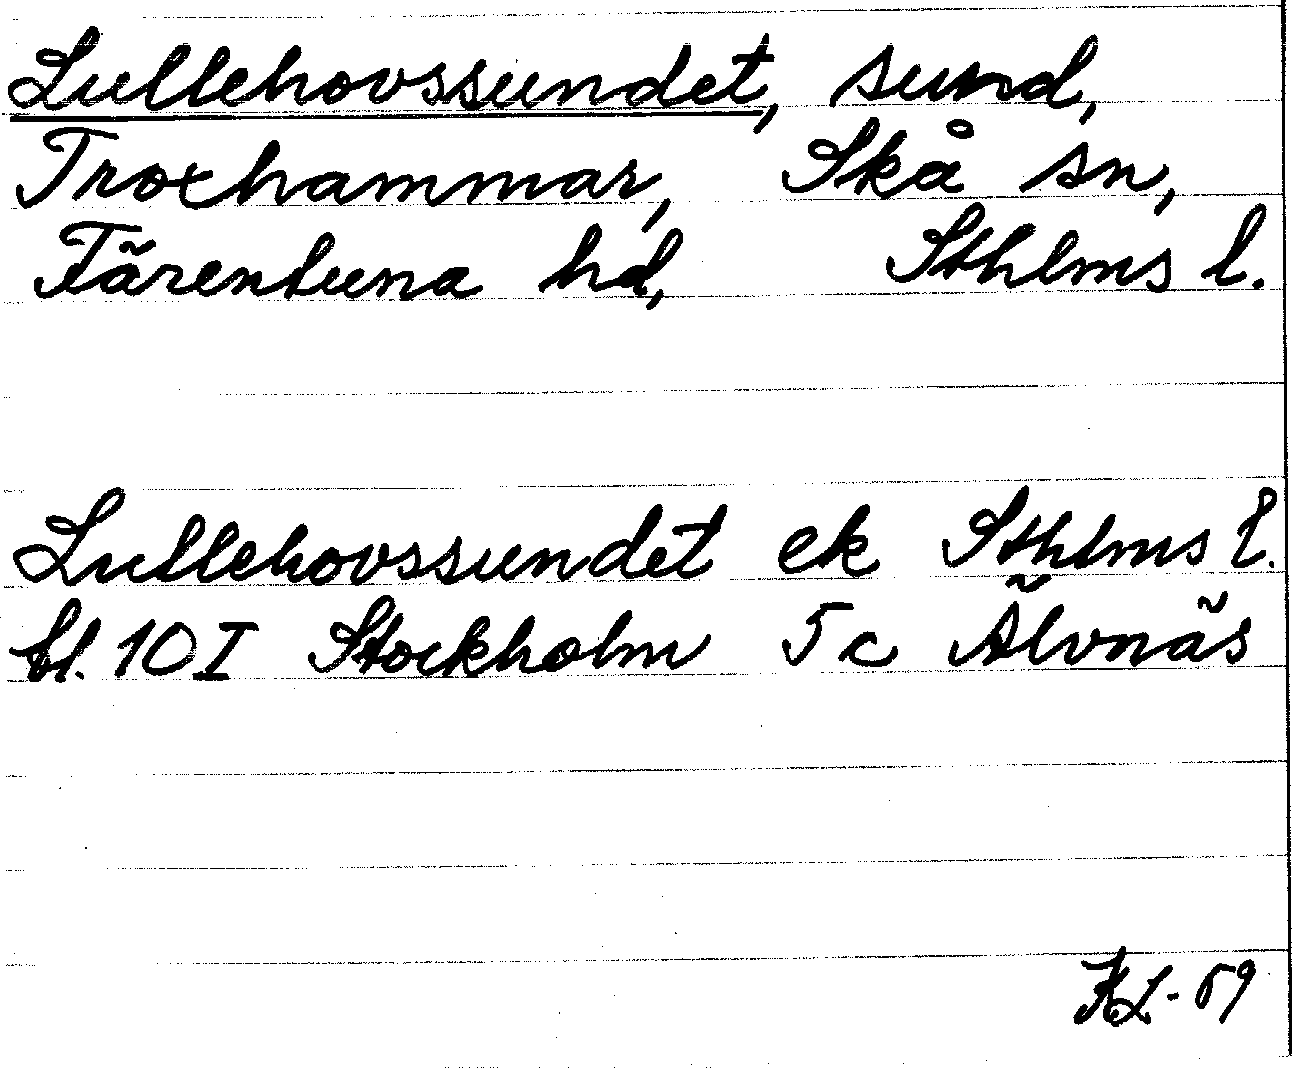 Lullehovssundet, sund,
Troxhammar, Skå sn,
Färentuna hd, Sthlms l.
Lullehovssundet ek Sthlms l.
bl. 10 I Stockholm 5 c Älvnäs
KL-59